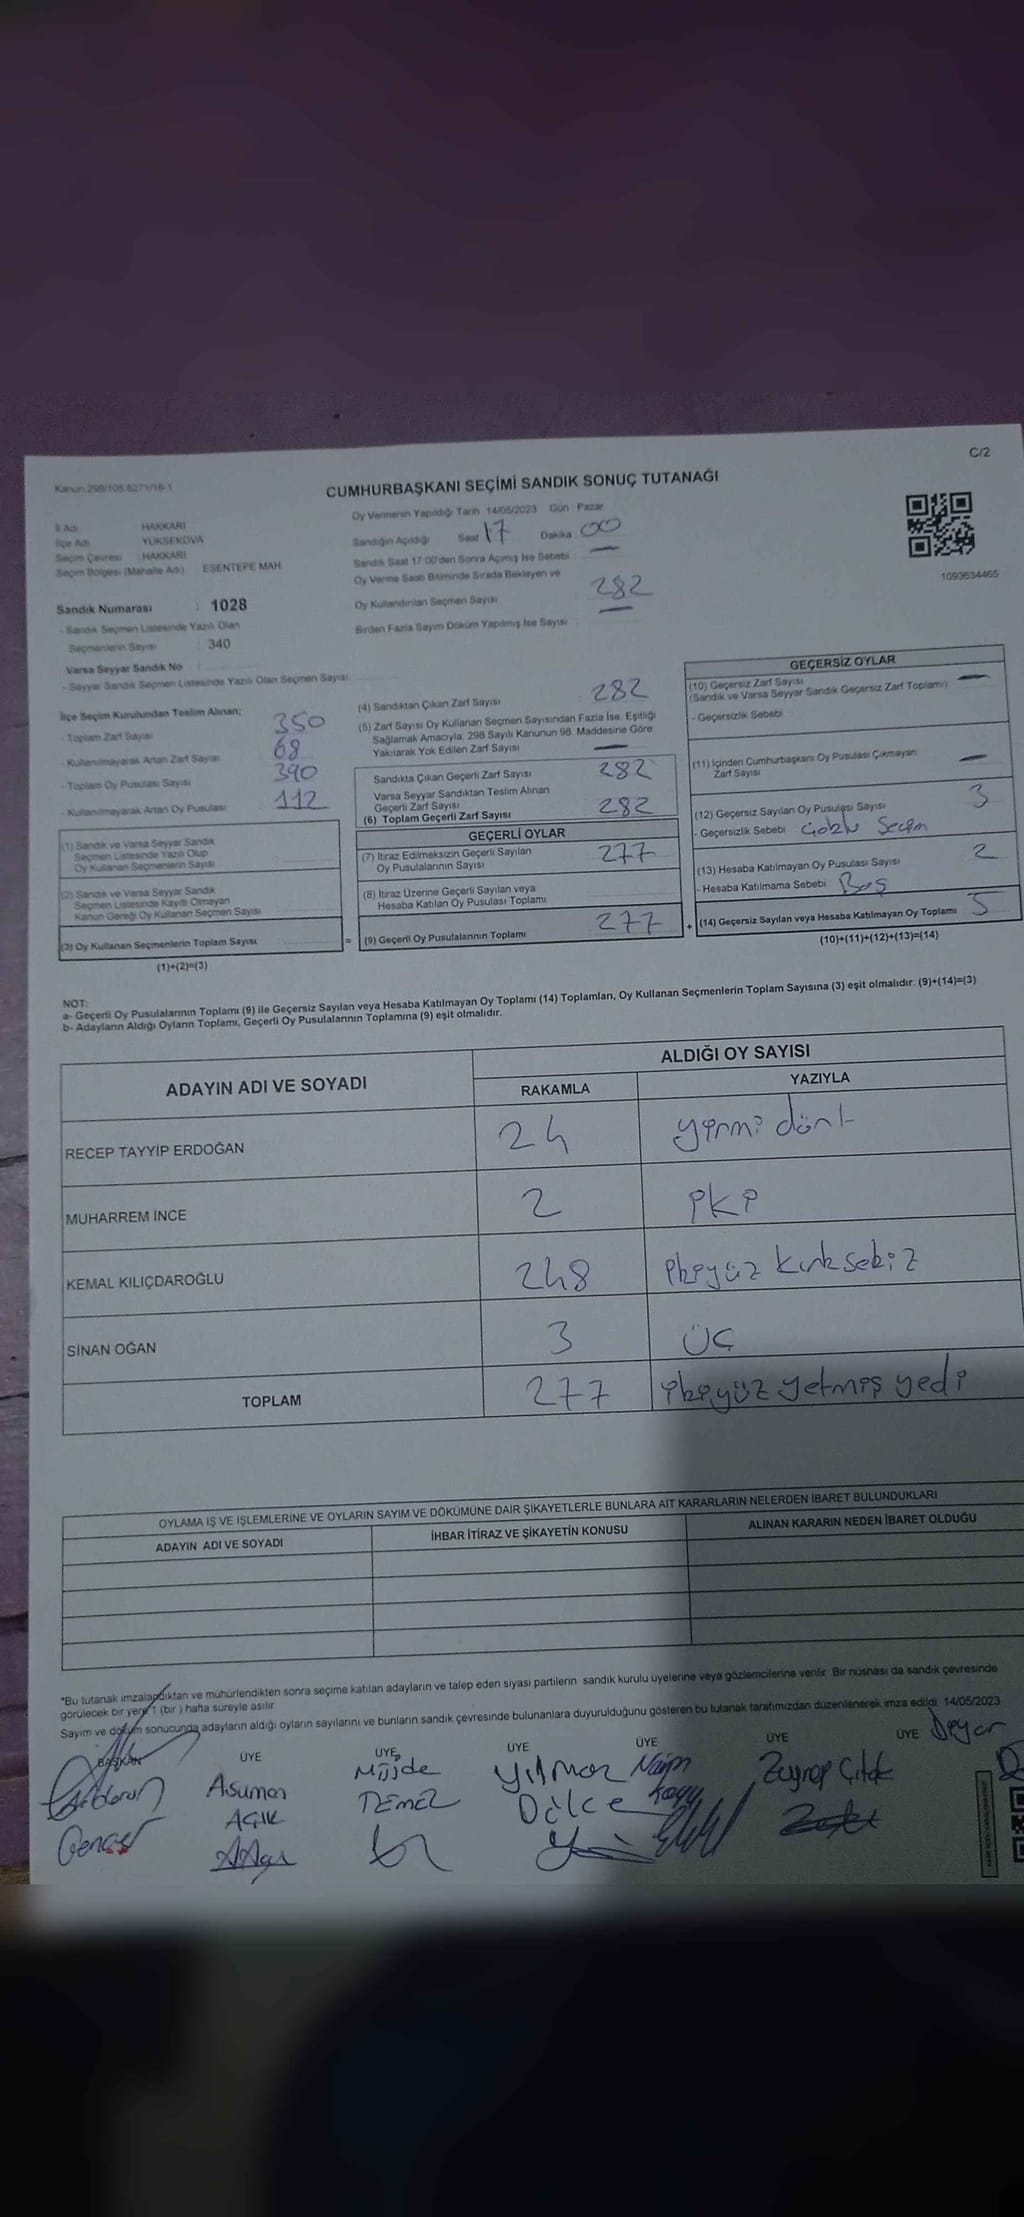 C/2
Kanun:298/105,6271/18-1
CUMHURBAŞKANI SEÇİMİ SANDIK SONUÇ TUTANAĞI
1093634465
İl Adı HAKKARİ
İlçe Adı YÜKSEKOVA
Seçim Çevresi : HAKKARİ
Seçim Bölgesi (Mahalle Adı) ESENTEPE MAH
Sandık Numarası : 1028
- Sandık Seçmen Listesinde Yazılı Olan
Seçmenlerin Sayısı : 340
Varsa Seyyar Sandık No :
- Seyyar Sandık Seçmen Listesinde Yazılı Olan Seçmen Sayısı
Oy Vermenin Yapıldığı Tarih 14/05/2023 Gün : Pazar
Sandığın Açıldığı Saat 17 Dakika 00
Sandık Saat 17:00'den Sonra Açılmış İse Sebebi —
Oy Verme Saati Bitiminde Sırada Bekleyen ve
Oy Kullandırılan Seçmen Sayısı 282
Birden Fazla Sayım Döküm Yapılmış İse Sayısı —
İlçe Seçim Kurulundan Teslim Alınan;
- Toplam Zarf Sayısı 350
- Kullanılmayarak Artan Zarf Sayısı 68
- Toplam Oy Pusulası Sayısı 390
- Kullanılmayarak Artan Oy Pusulası 112
(1) Sandık ve Varsa Seyyar Sandık
Seçmen Listesinde Yazılı Olup
Oy Kullanan Seçmenlerin Sayısı
(2) Sandık ve Varsa Seyyar Sandık
Seçmen Listesinde Kayıtlı Olmayan
Kanun Gereği Oy Kullanan Seçmen Sayısı
(3) Oy Kullanan Seçmenlerin Toplam Sayısı =
(1)+(2)=(3)
(4) Sandıktan Çıkan Zarf Sayısı 282
(5) Zarf Sayısı Oy Kullanan Seçmen Sayısından Fazla İse, Eşitliği
Sağlamak Amacıyla; 298 Sayılı Kanunun 98. Maddesine Göre
Yakılarak Yok Edilen Zarf Sayısı —
Sandıkta Çıkan Geçerli Zarf Sayısı 282
Varsa Seyyar Sandıktan Teslim Alınan
Geçerli Zarf Sayısı
(6) Toplam Geçerli Zarf Sayısı 282
GEÇERLİ OYLAR
(7) İtiraz Edilmeksizin Geçerli Sayılan
Oy Pusulalarının Sayısı 277
(8) İtiraz Üzerine Geçerli Sayılan veya
Hesaba Katılan Oy Pusulası Toplamı
(9) Geçerli Oy Pusulalarının Toplamı 277 +
GEÇERSİZ OYLAR
(10) Geçersiz Zarf Sayısı —
(Sandık ve Varsa Seyyar Sandık Geçersiz Zarf Toplamı)
- Geçersizlik Sebebi
(11) İçinden Cumhurbaşkanı Oy Pusulası Çıkmayan
Zarf Sayısı —
(12) Geçersiz Sayılan Oy Pusulası Sayısı 3
- Geçersizlik Sebebi Çoklu Seçim
(13) Hesaba Katılmayan Oy Pusulası Sayısı 2
- Hesaba Katılmama Sebebi Boş
(14) Geçersiz Sayılan veya Hesaba Katılmayan Oy Toplamı 5
(10)+(11)+(12)+(13)=(14)
NOT:
a- Geçerli Oy Pusulalarının Toplamı (9) ile Geçersiz Sayılan veya Hesaba Katılmayan Oy Toplamı (14) Toplamları, Oy Kullanan Seçmenlerin Toplam Sayısına (3) eşit olmalıdır. (9)+(14)=(3)
b- Adayların Aldığı Oyların Toplamı, Geçerli Oy Pusulalarının Toplamına (9) eşit olmalıdır.
ADAYIN ADI VE SOYADI ALDIĞI OY SAYISI
RAKAMLA YAZIYLA
RECEP TAYYİP ERDOĞAN 24 yirmi dört
MUHARREM İNCE 2 iki
KEMAL KILIÇDAROĞLU 248 ikiyüz kırk sekiz
SİNAN OĞAN 3 üç
TOPLAM 277 ikiyüz yetmiş yedi
OYLAMA İŞ VE İŞLEMLERİNE VE OYLARIN SAYIM VE DÖKÜMÜNE DAİR ŞİKAYETLERLE BUNLARA AİT KARARLARIN NELERDEN İBARET BULUNDUKLARI
ADAYIN ADI VE SOYADI İHBAR İTİRAZ VE ŞİKAYETİN KONUSU ALINAN KARARIN NEDEN İBARET OLDUĞU
*Bu tutanak imzalandıktan ve mühürlendikten sonra seçime katılan adayların ve talep eden siyasi partilerin sandık kurulu üyelerine veya gözlemcilerine verilir. Bir nüshası da sandık çevresinde
görülecek bir yere 1 (bir) hafta süreyle asılır.
Sayım ve döküm sonucunda adayların aldığı oyların sayılarını ve bunların sandık çevresinde bulunanlara duyurulduğunu gösteren bu tutanak tarafımızdan düzenlenerek imza edildi. 14/05/2023
BAŞKAN ÜYE ÜYE ÜYE ÜYE ÜYE ÜYE
Asuman Müjde Yılmaz Naim Zeynep Çiçek Deyar
AÇIK TEMEL Dölce